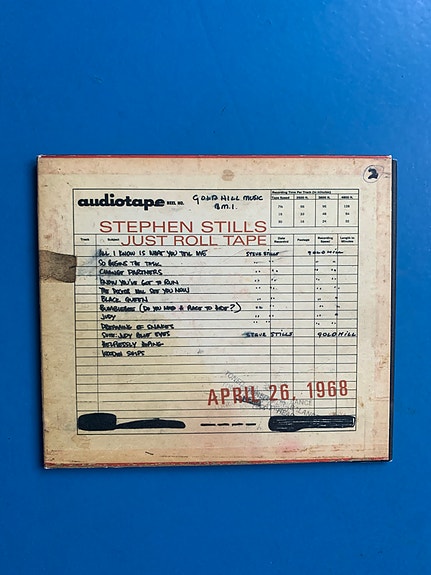 2
audiotape REEL NO. GOLD HILL MUSIC
B.M.I.
Recording Time Per Track (in minutes)
Tape Speed
STEPHEN STILLS
JUST ROLL TAPE
Track Subject Date Recorded Footage Recording Speed Length in Minutes
ALL I KNOW IS WHAT YOU TELL ME STEVE STILLS GOLD HILL
SO BEGINS THE TASK " " "
CHANGE PARTNERS " " "
KNOW YOU'VE GOT TO RUN " " "
THE DOCTOR WILL SEE YOU NOW " " "
BLACK QUEEN " " "
BUMBLEBEE (DO YOU NEED A PLACE TO HIDE?) " " "
JUDY " " "
DREAMING OF SNAKES
SUITE: JUDY BLUE EYES STEVE STILLS GOLD HILL
HELPLESSLY HOPING
WOODEN SHIPS
APRIL 26, 1968